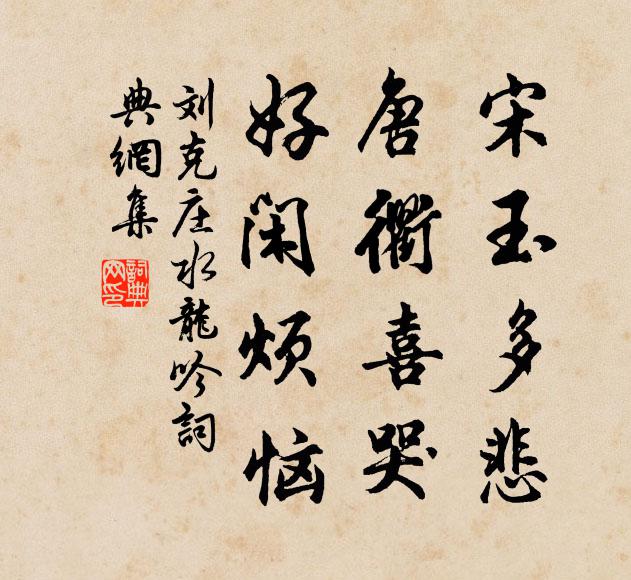 宋玉多悲
唐衢喜哭
好闲烦恼
刘克庄水龍吟詞
典網集
詞典网印